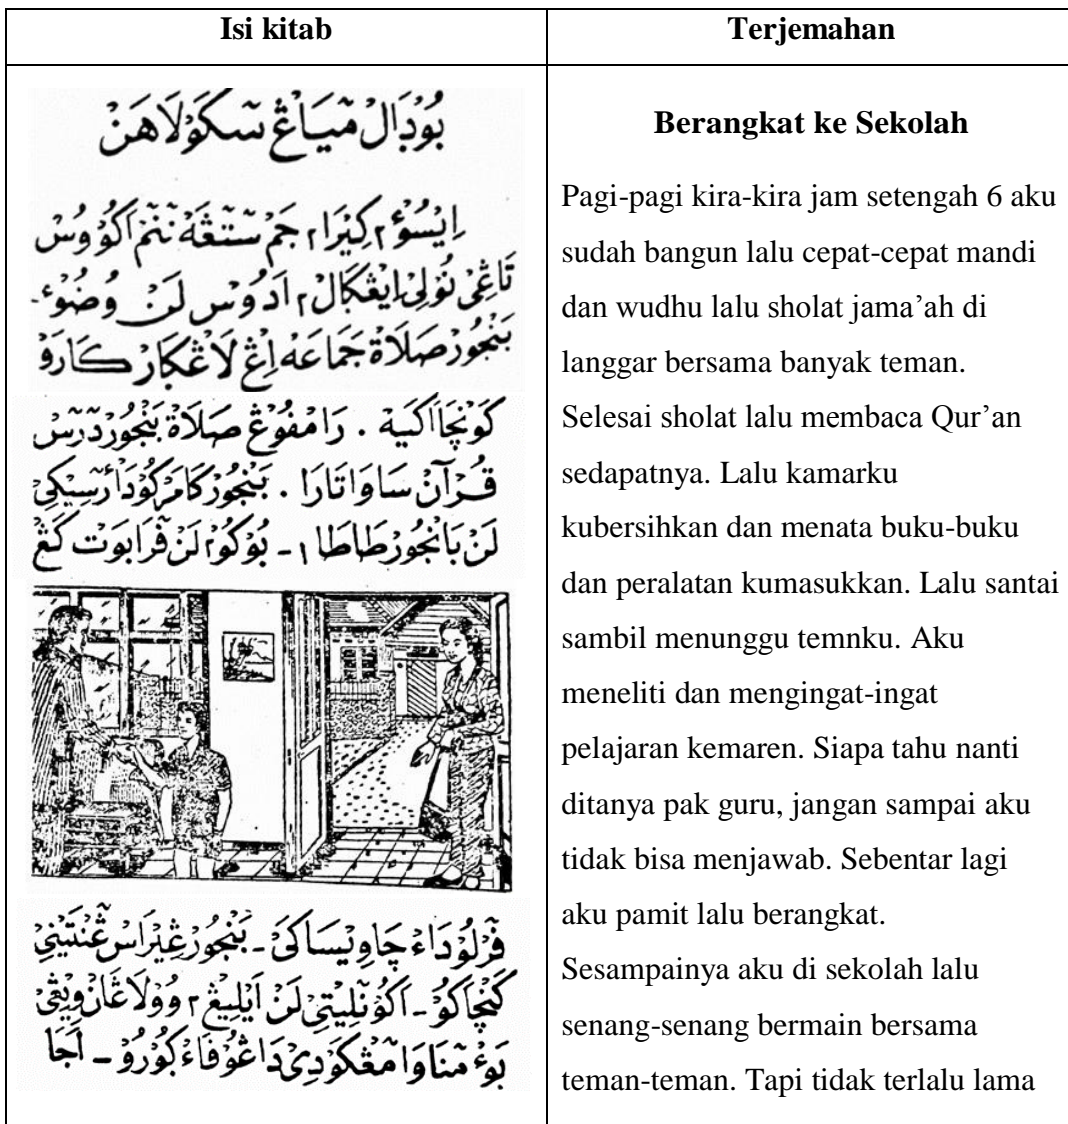 Isi kitab
Terjemahan
بُوْدَالْ مَّيَاڠْ سَّكَوْلَاهَنْ
اِيْسُوْء٢ كِيْرَا٢ جَمْ سَّتَّڠَهْ نَّنَّمْ اَكُوْ وُسْ
تَاڠِيْ نُوْلِيْ اِيْڠْڮَالْ٢ اَدُوْسْ لَنْ وُضُوْء
بَنْجُوْرْ صَلَاةْ جَمَاعَهْ اِڠْ لَاڠْڮَارْ كَارَوْ
كَوْنْچَا اَكَيَهْ . رَامْفُوْڠْ صَلَاةْ بَنْجُوْرْ دَّرَّسْ
قُرْآنْ سَاوَاتَارَا . بَنْجُوْرْ كَامَرْكُوْ دَاءْ رَّسِيْكِيْ
لَنْ بَانْجُوْرْ طَاطَا ١ - بُوْكُوْ٢ لَنْ فْرَابَوْتْ كَڠْ
فَّرْلُوْ دَاءْ چَاوِيْسَاكَيْ - بَنْجُوْرْ ڠِيْرَاسْ ڠَّنْتَيْنِيْ
كَنْچَاكُوْ - اَكُوْ نَّلِيْتِيْ لَنْ اَيْلِيْڠْ٢ وُوْلَاڠَانْ وِيْڠِيْ
بَوْءْ مَّنَاوَا مَّڠْكَوْ دِيْ دَاڠُوْ فَاءْ ڮُوْرُوْ - اَجَا
Berangkat ke Sekolah
Pagi-pagi kira-kira jam setengah 6 aku
sudah bangun lalu cepat-cepat mandi
dan wudhu lalu sholat jama’ah di
langgar bersama banyak teman.
Selesai sholat lalu membaca Qur’an
sedapatnya. Lalu kamarku
kubersihkan dan menata buku-buku
dan peralatan kumasukkan. Lalu santai
sambil menunggu temnku. Aku
meneliti dan mengingat-ingat
pelajaran kemaren. Siapa tahu nanti
ditanya pak guru, jangan sampai aku
tidak bisa menjawab. Sebentar lagi
aku pamit lalu berangkat.
Sesampainya aku di sekolah lalu
senang-senang bermain bersama
teman-teman. Tapi tidak terlalu lama